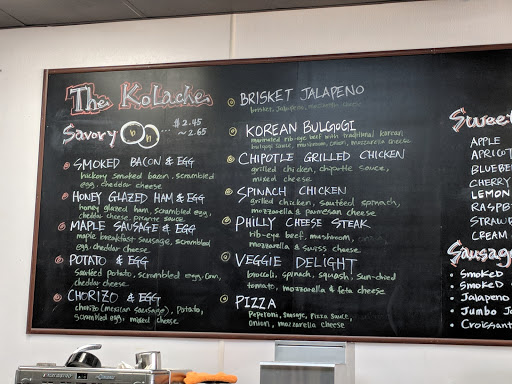 The Kolaches
Savory ... $2.45
~2.65
SMOKED BACON & EGG
hickory smoked bacon, scrambled
egg, cheddar cheese
HONEY GLAZED HAM & EGG
honey glazed ham, scrambled egg,
cheddar cheese, picante sauce
MAPLE SAUSAGE & EGG
maple breakfast sausage, scrambled
egg, cheddar cheese
POTATO & EGG
sautéed potato, scrambled egg, corn,
cheddar cheese
CHORIZO & EGG
chorizo (mexican sausage), potato,
scrambled egg, mixed cheese
BRISKET JALAPENO
brisket, jalapeno, mozzarella cheese
KOREAN BULGOGI
marinated rib-eye beef with traditional korean
bulgogi sauce, mushroom, onion, mozzarella cheese
CHIPOTLE GRILLED CHICKEN
grilled chicken, chipotle sauce,
mixed cheese
SPINACH CHICKEN
grilled chicken, sautéed spinach,
mozzarella & parmesan cheese
PHILLY CHEESE STEAK
rib-eye beef, mushroom,
mozzarella & swiss cheese
VEGGIE DELIGHT
broccoli, spinach, squash, sun-dried
tomato, mozzarella & feta cheese
PIZZA
Peperoni, sausage, pizza sauce,
onion, mozzarella cheese
Sweet
APPLE
APRICOT
BLUEBE
CHERRY
LEMON
RASPB
STRAW
CREAM
Sausag
SMOKED
SMOKED
Jalapeno
Jumbo Ja
Croissant